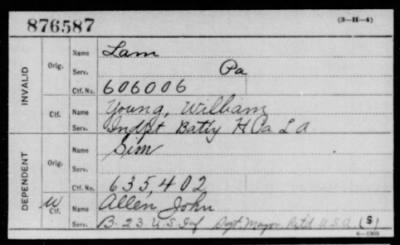 876587 (3-H-4)
INVALID
Orig. Name Lam
Serv. Pa
Ctf. No. 606006
Ctf. Name Young, William
Serv. Indpt Batty H Pa L A
DEPENDENT
Orig. Name Sim
Serv.
Ctf. No. 635,402
W Ctf. Name Allen John
Serv. B. 23 U.S. Inf Sgt. Major Retd U.S.A. (S)